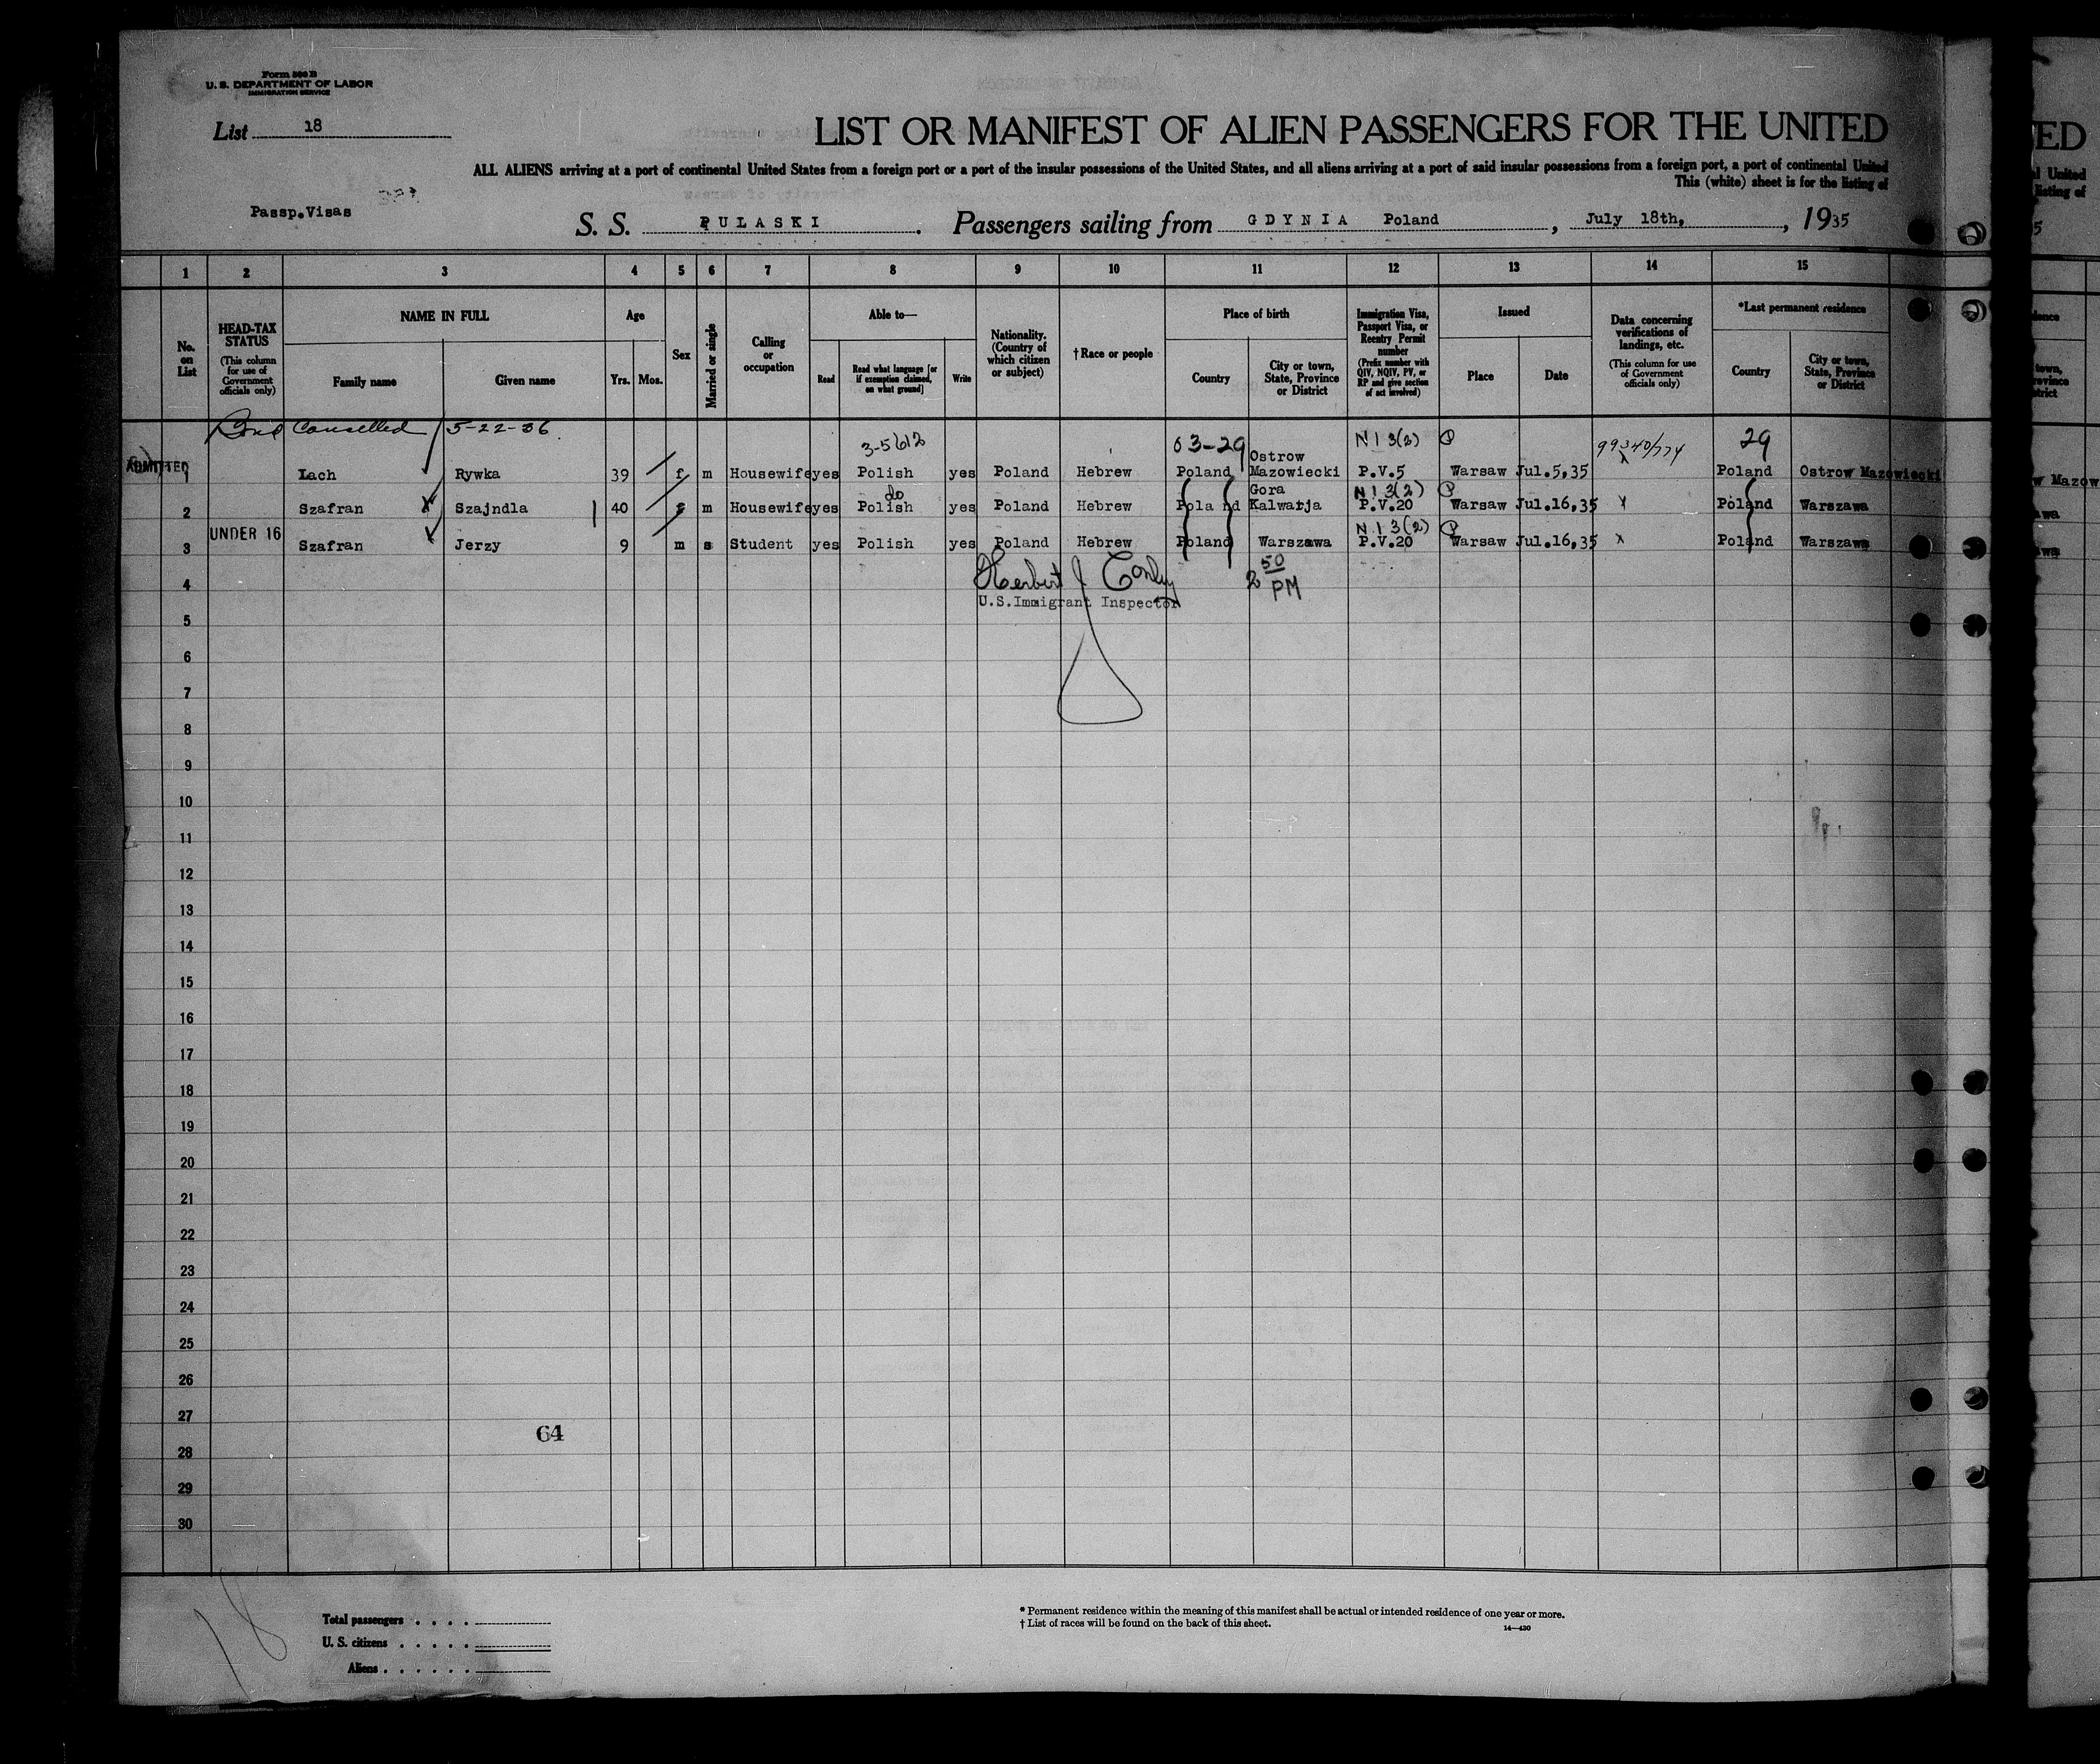 Form 500 B
U. S. DEPARTMENT OF LABOR
IMMIGRATION SERVICE
List 18
LIST OR MANIFEST OF ALIEN PASSENGERS FOR THE UNITED
ALL ALIENS arriving at a port of continental United States from a foreign port or a port of the insular possessions of the United States, and all aliens arriving at a port of said insular possessions from a foreign port, a port of continental United
This (white) sheet is for the listing of
Passp.Visas
S. S. PULASKI . Passengers sailing from GDYNIA Poland , July 18th, , 1935
1 2 3 4 5 6 7 8 9 10 11 12 13 14 15
No. on List
HEAD-TAX STATUS (This column for use of Government officials only)
NAME IN FULL
Family name
Given name
Age
Yrs. Mos.
Sex
Married or single
Calling or occupation
Able to—
Read
Read what language [or if exemption claimed, on what ground]
Write
Nationality. (Country of which citizen or subject)
†Race or people
Place of birth
Country
City or town, State, Province or District
Immigration Visa, Passport Visa, or Reentry Permit number (Prefix number with QIV, NQIV, PV, or RP and give section of act involved)
Issued
Place
Date
Data concerning verifications of landings, etc. (This column for use of Government officials only)
*Last permanent residence
Country
City or town, State, Province or District
Bond Cancelled 5-22-36
3-5612 03-29 N 1 3(2) P 99340/774 29
ADMITTED
1 Lach Rywka 39 f m Housewife yes Polish yes Poland Hebrew Poland Ostrow Mazowiecki P.V.5 Warsaw Jul.5,35 Poland Ostrow Mazowiecki
do N 1 3(2) P
2 Szafran Szajndla 40 f m Housewife yes Polish yes Poland Hebrew Pola nd Gora Kalwarja P.V.20 Warsaw Jul.16,35 Poland Warszawa
UNDER 16 N 1 3(2) P
3 Szafran Jerzy 9 m s Student yes Polish yes Poland Hebrew Poland Warszawa P.V.20 Warsaw Jul.16,35 x Poland Warszawa
Herbert J Conly 2 50 PM
U.S.Immigrant Inspector
4
5
6
7
8
9
10
11
12
13
14
15
16
17
18
19
20
21
22
23
24
25
26
27
64
28
29
30
18
Total passengers
U. S. citizens
Aliens
* Permanent residence within the meaning of this manifest shall be actual or intended residence of one year or more.
† List of races will be found on the back of this sheet.
14—430